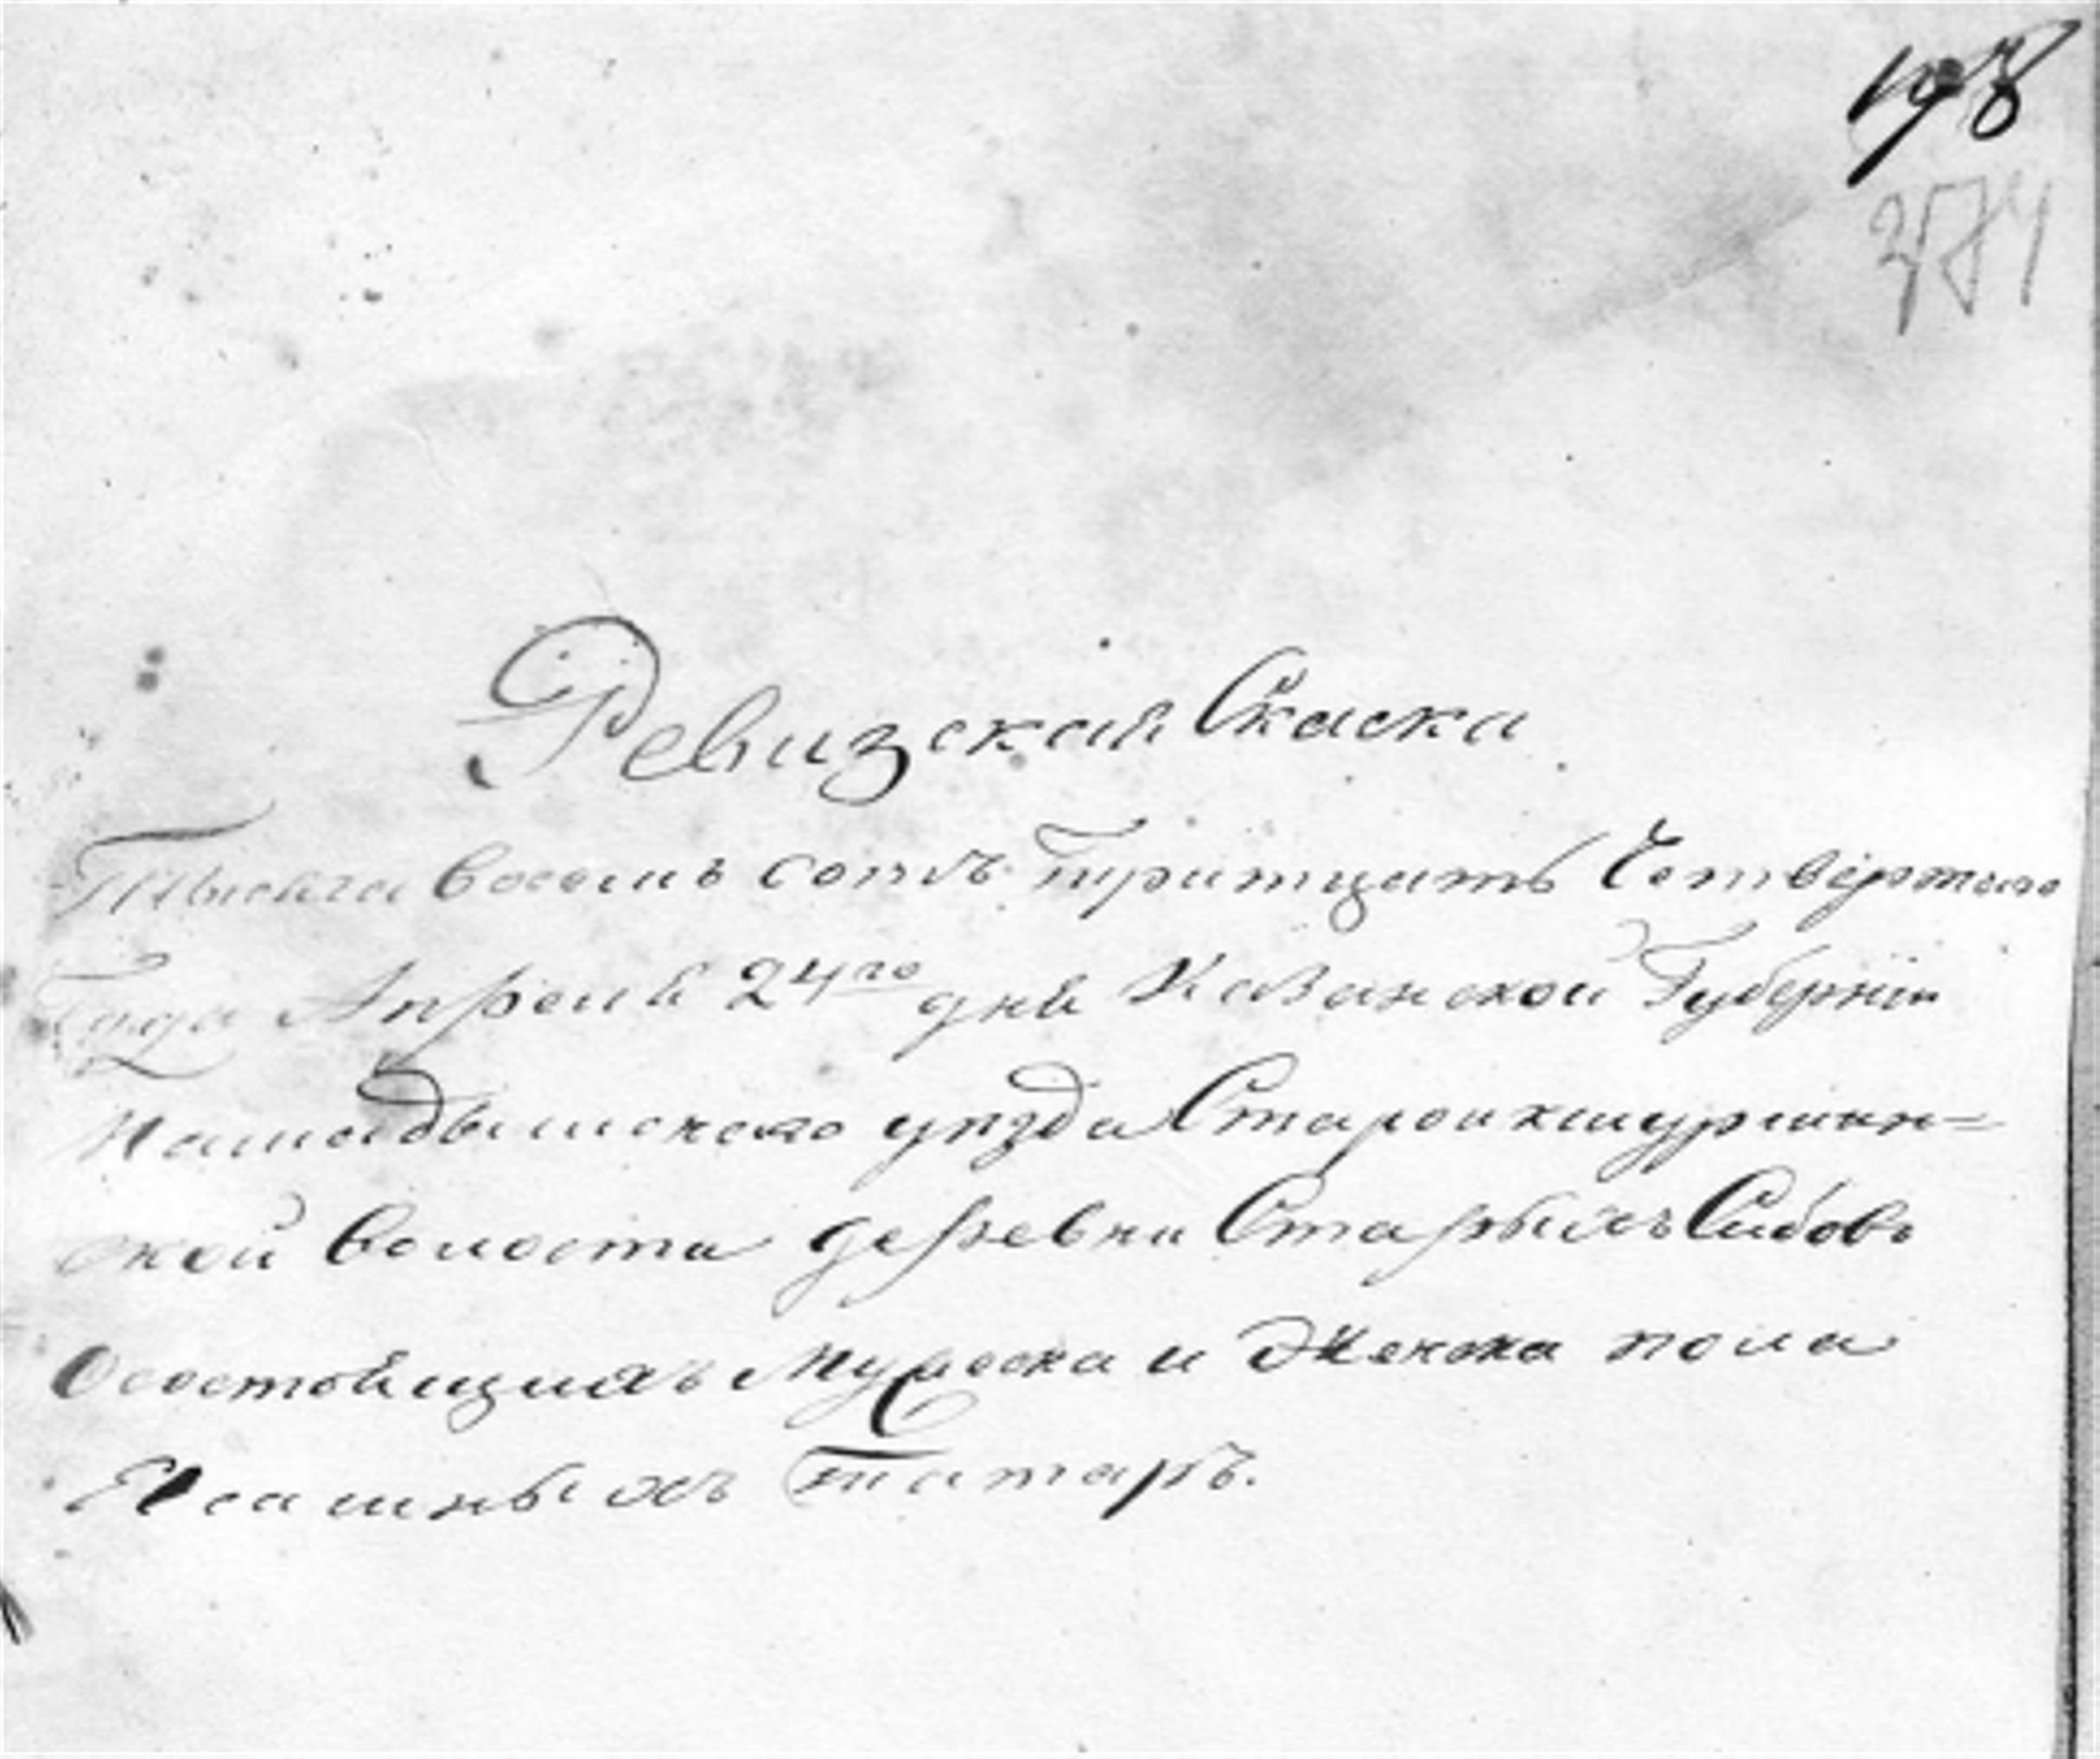 198
Ревизская Скаска
Тысяча восемь сотъ тритцать Четвертого
Года Апреля 24го дня Казанской Губернiи
Мамадышского уезда Староикшурмин=
ской волости деревни Старыхъ Сибовъ
Осостоящихъ Муске и Женска пола
Ясашныхъ татаръ.